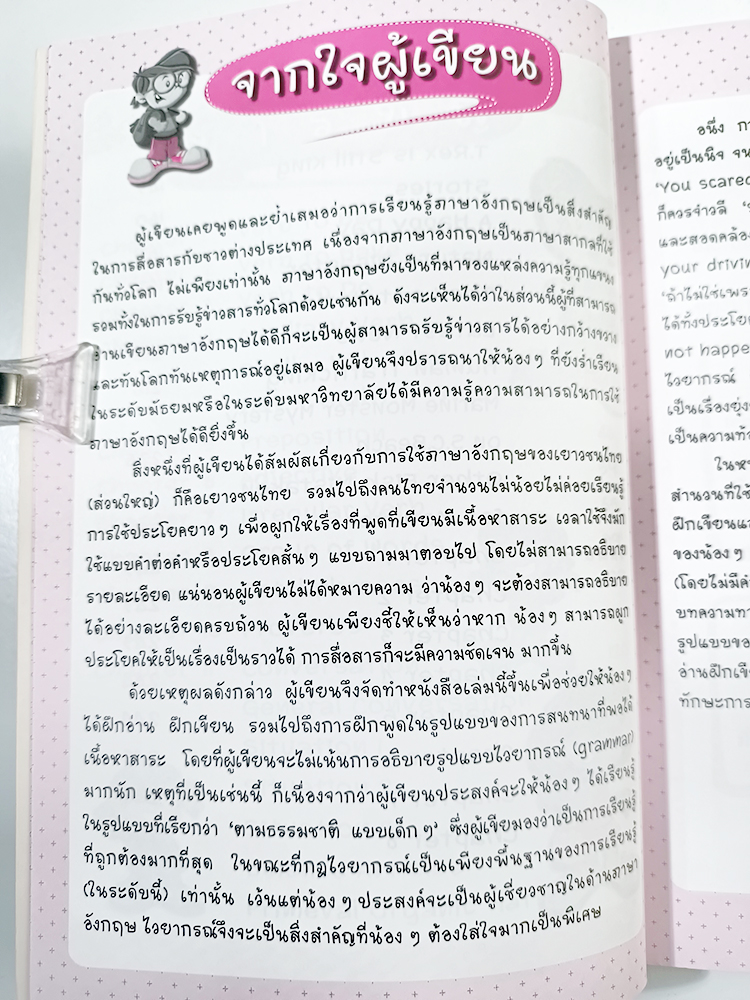 จากใจผู้เขียน
ผู้เขียนเคยพูดและย้ำเสมอว่าการเรียนรู้ภาษาอังกฤษเป็นสิ่งสำคัญ
ในการสื่อสารกับชาวต่างประเทศ เนื่องจากภาษาอังกฤษเป็นภาษาสากลที่ใช้
กันทั่วโลก ไม่เพียงเท่านั้น ภาษาอังกฤษยังเป็นที่มาของแหล่งความรู้ทุกแขนง
รวมทั้งในการรับรู้ข่าวสารทั่วโลกด้วยเช่นกัน ดังจะเห็นได้ว่าในส่วนนี้ผู้ที่สามารถ
อ่านเขียนภาษาอังกฤษได้ดีก็จะเป็นผู้สามารถรับรู้ข่าวสารได้อย่างกว้างขวาง
และทันโลกทันเหตุการณ์อยู่เสมอ ผู้เขียนจึงปรารถนาให้น้อง ๆ ที่ยังร่ำเรียน
ในระดับมัธยมหรือในระดับมหาวิทยาลัยได้มีความรู้ความสามารถในการใช้
ภาษาอังกฤษได้ดียิ่งขึ้น
สิ่งหนึ่งที่ผู้เขียนได้สัมผัสเกี่ยวกับการใช้ภาษาอังกฤษของเยาวชนไทย
(ส่วนใหญ่) ก็คือเยาวชนไทย รวมไปถึงคนไทยจำนวนไม่น้อยไม่ค่อยเรียนรู้
การใช้ประโยคยาว ๆ เพื่อผูกให้เรื่องที่พูดที่เขียนมีเนื้อหาสาระ เวลาใช้จึงมัก
ใช้แบบคำต่อคำหรือประโยคสั้น ๆ แบบถามมาตอบไป โดยไม่สามารถอธิบาย
รายละเอียด แน่นอนผู้เขียนไม่ได้หมายความ ว่าน้อง ๆ จะต้องสามารถอธิบาย
ได้อย่างละเอียดครบถ้วน ผู้เขียนเพียงชี้ให้เห็นว่าหาก น้อง ๆ สามารถผูก
ประโยคให้เป็นเรื่องเป็นราวได้ การสื่อสารก็จะมีความชัดเจน มากขึ้น
ด้วยเหตุผลดังกล่าว ผู้เขียนจึงจัดทำหนังสือเล่มนี้ขึ้นเพื่อช่วยให้น้อง ๆ
ได้ฝึกอ่าน ฝึกเขียน รวมไปถึงการฝึกพูดในรูปแบบของการสนทนาที่พอได้
เนื้อหาสาระ โดยที่ผู้เขียนจะไม่เน้นการอธิบายรูปแบบไวยากรณ์ (grammar)
มากนัก เหตุที่เป็นเช่นนี้ ก็เนื่องจากว่าผู้เขียนประสงค์จะให้น้อง ๆ ได้เรียนรู้
ในรูปแบบที่เรียกว่า 'ตามธรรมชาติ แบบเด็ก ๆ' ซึ่งผู้เขียนมองว่าเป็นการเรียนรู้
ที่ถูกต้องมากที่สุด ในขณะที่กฎไวยากรณ์เป็นเพียงพื้นฐานของการเรียนรู้
(ในระดับนี้) เท่านั้น เว้นแต่น้อง ๆ ประสงค์จะเป็นผู้เชี่ยวชาญในด้านภาษา
อังกฤษ ไวยากรณ์จึงจะเป็นสิ่งสำคัญที่น้อง ๆ ต้องใส่ใจมากเป็นพิเศษ
อนึ่ง
อยู่เป็นนิจ
'You scared
ก็ควรจำวลี
และสอดคล้อง
your
'ถ้าไม่ใช่เพราะ
ได้ทั้งประโยค
not
ไวยากรณ์
เป็นเรื่อง
เป็นความ
สำนวนที่ใช้
ฝึกเขียน
ของน้อง ๆ
(โดยไม่มี
บทความ
รูปแบบของ
อ่านฝึก
ทักษะการ